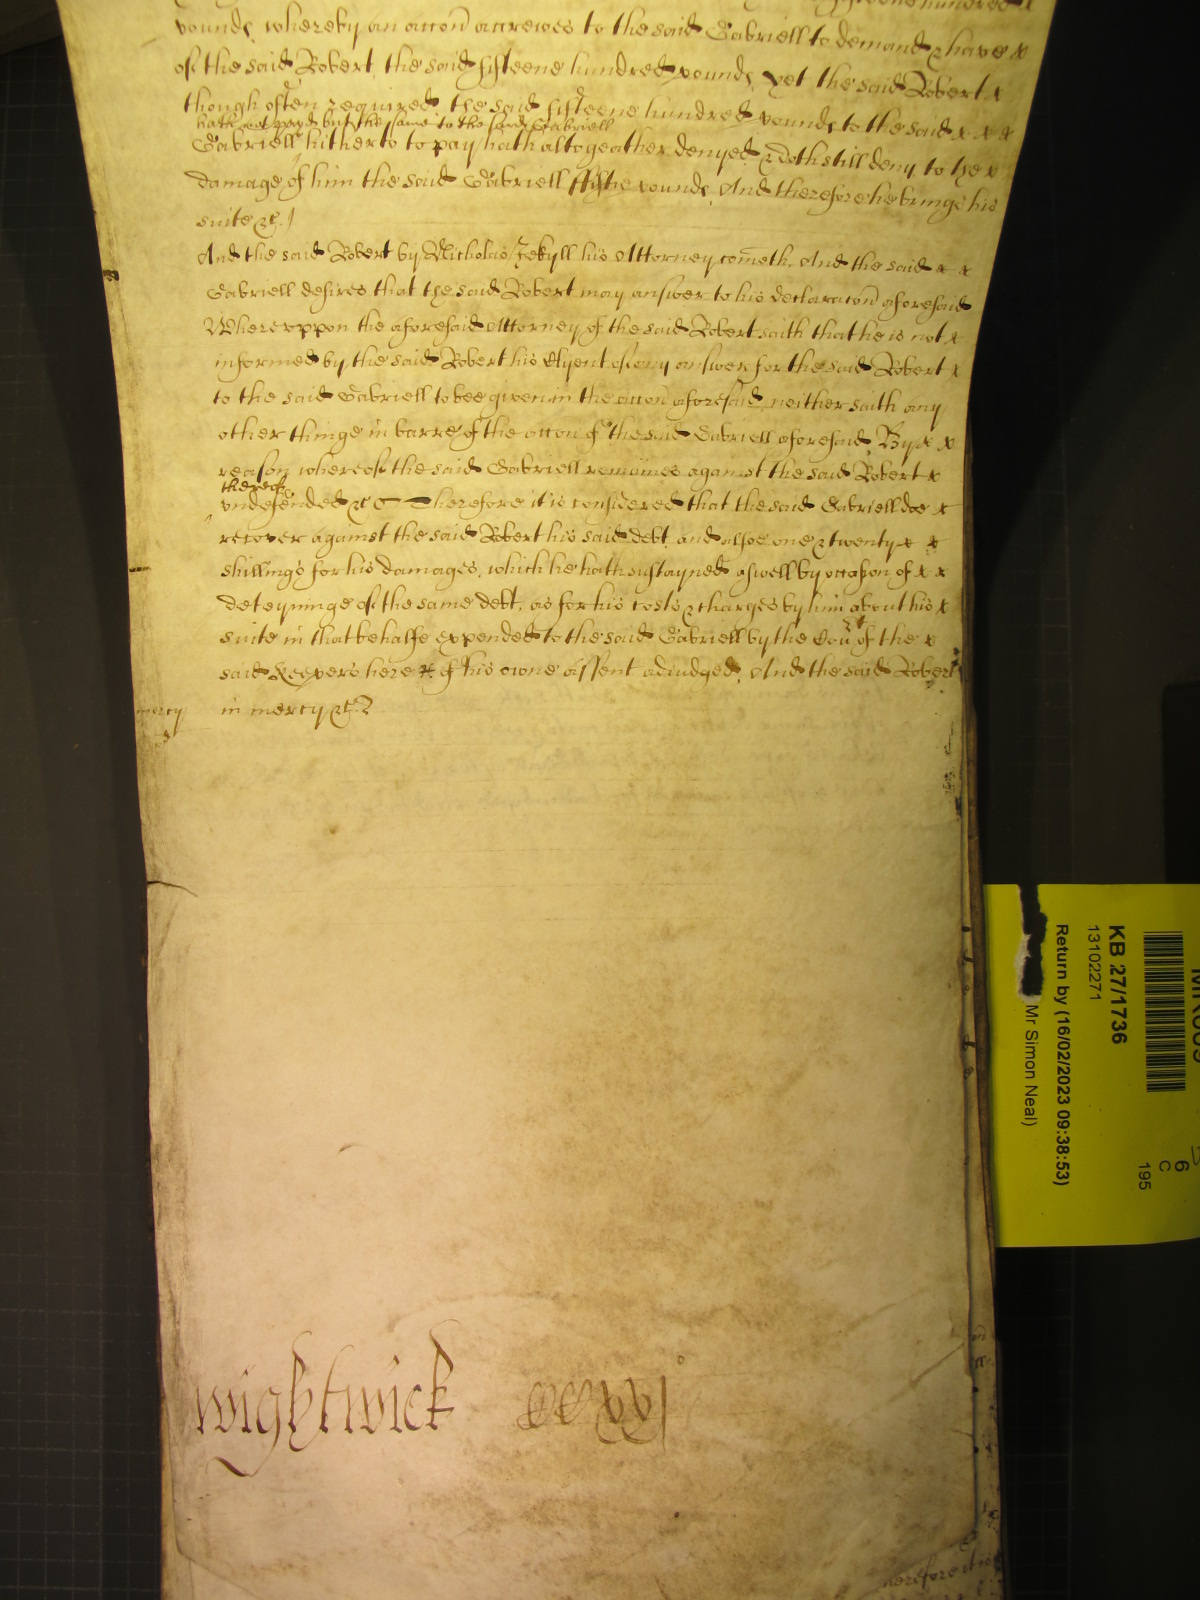 fifteene hundred x
pounds whereby an accon accrewes to the said Gabriell to demand & have x
of the said Robert the said fifteene hundred pounds yet the said Robert x
though often required the said fifteene hundred pounds to the said x x x
hath not payd but the same to the said Gabriell
Gabriell hitherto to pay hath altogeather denyed & doth still deny to the x
damage of him the said Gabriell fiftie pounds And therefore he brings his
suite &c. /
And the said Robert by Nicholas Jekyll his Attorney cometh. And the said x x
Gabriell desires that the said Robert may answer to his declaracon aforesaid
Whereuppon the aforesaid Attorney of the said Robert saith that he is not x
informed by the said Robert his Clyent of any answer for the said Robert x
to the said Gabriell to bee given in the accon aforesaid neither saith any
other thinge in barre of the accon of the said Gabriell aforesaid, By x x
reason whereof the said Gabriell remaines against the said Robert x
thereof
undefended &c Therefore it is considered that the said Gabriell doe x
recover against the said Robert his said debt and alsoe one & twenty x x
shillings for his damages, which he hath sustayned aswell by occasion of x x
deteyninge of the same debt, as for his costs & charges by him about his x
suite in that behalfe expended to the said Gabriell by the Cort of the x
said Keepers here of his owne assent adiudged, And the said Robert
mercy in mercy &c.
wightwick ccxxj
KB 27/1736
13102271
Return by (16/02/2023 09:38:53)
Mr Simon Neal)
6
C
195
therefore it is